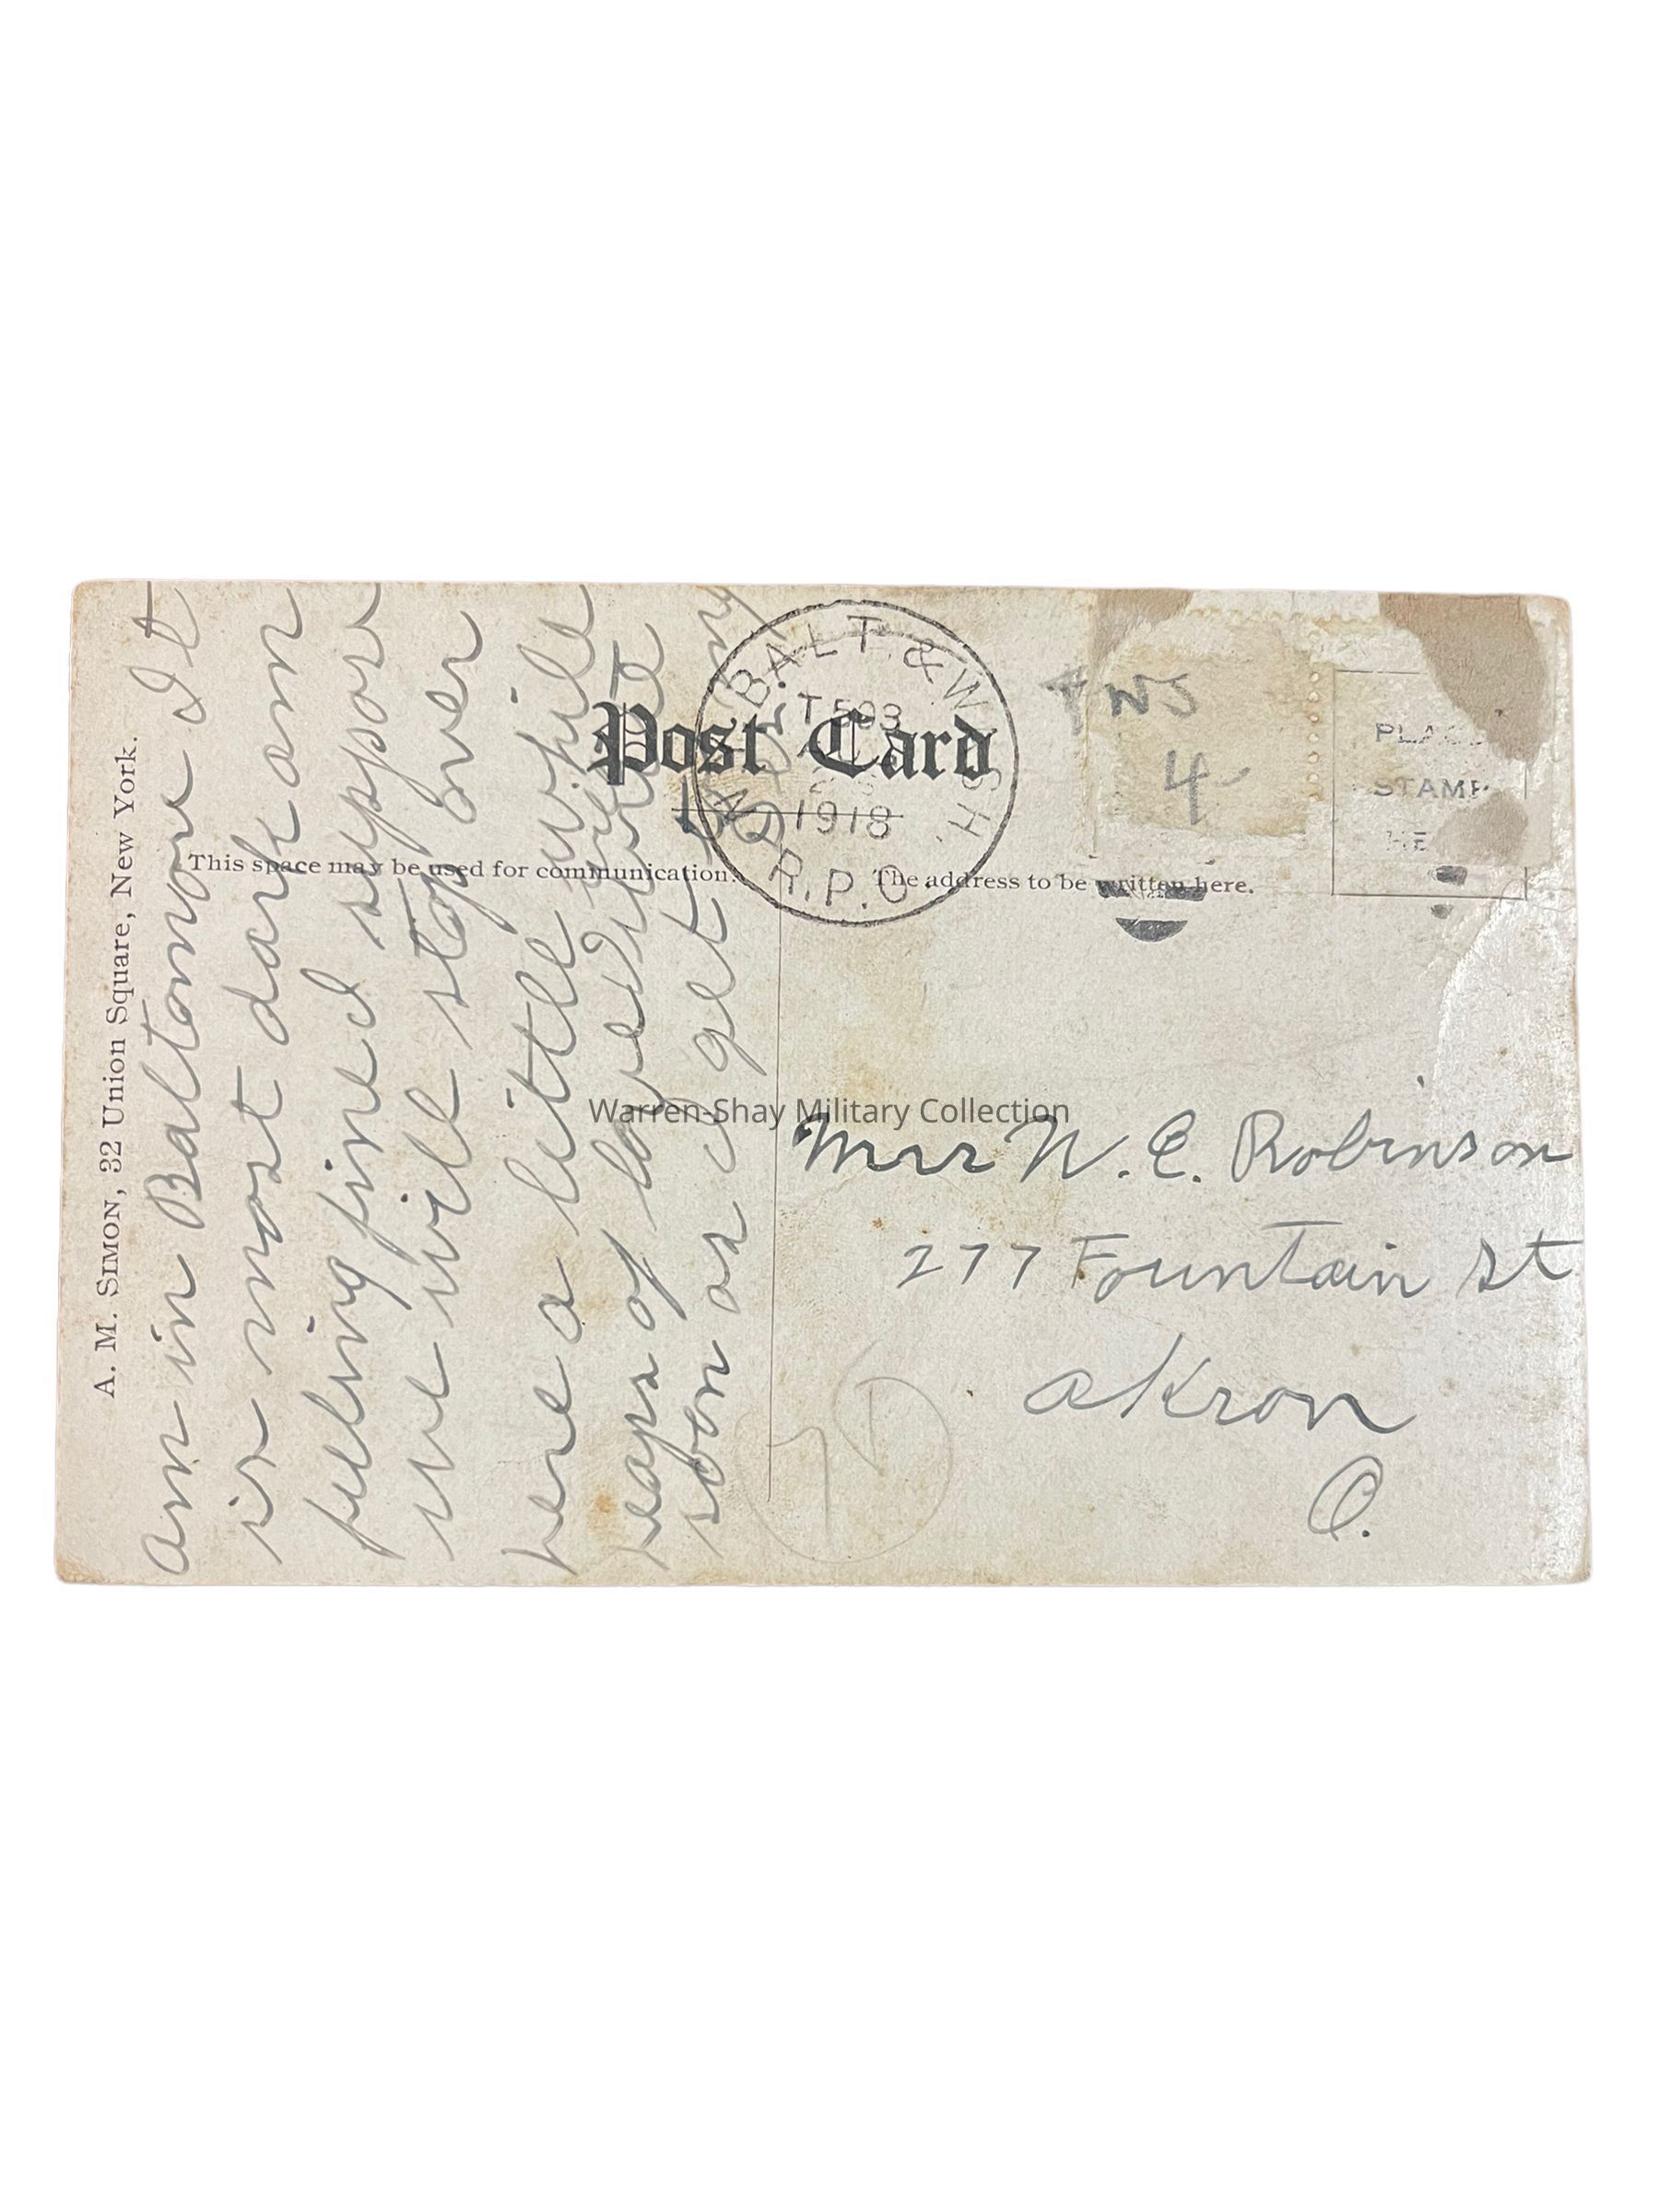 Post Card
This space may be used for communication.
The address to be written here.
PLACE
STAMP
HE
A. M. SIMON, 32 Union Square, New York.
BALT. & WASH.
T 593
1918
R.P.O.
NS
4
am in Baltomore It
is most dark am
feeling fine I suppose
we will stop over
here a little while
heaps of love
soon as I get
Mrs N. E. Robinson
277 Fountain St
Akron
O.
Warren-Shay Military Collection